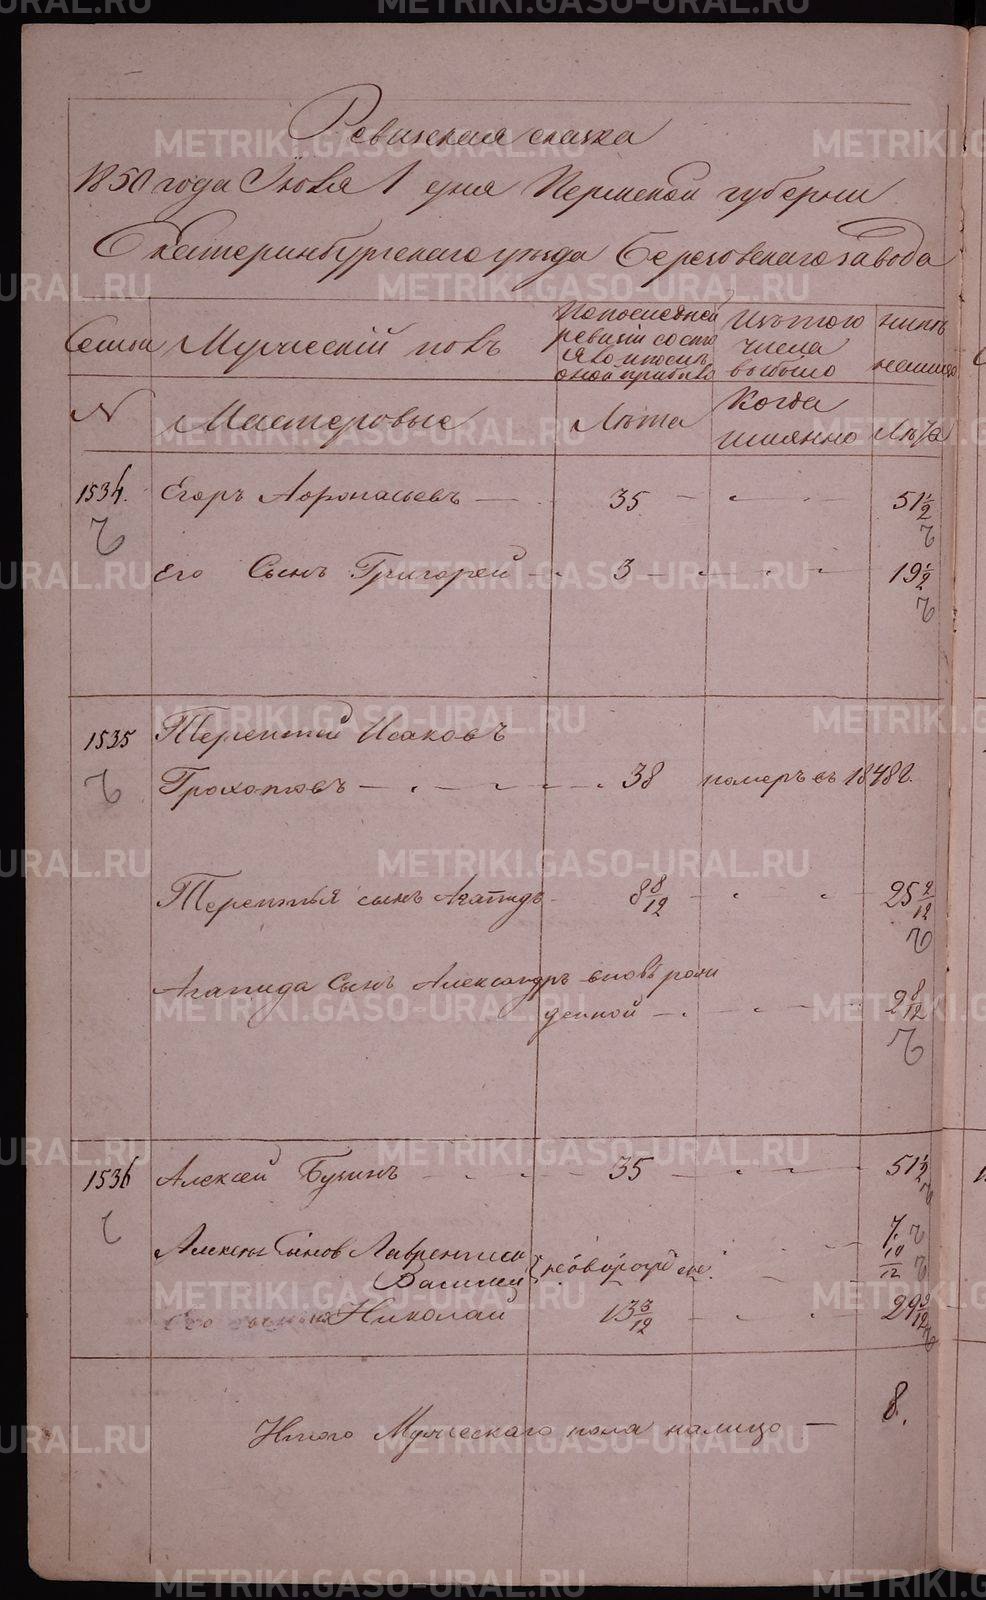 Ревизская сказка
1850 года Июня 1 дня Пермской губернии
Екатеринбургскаго уезда Березовскаго завода
Семьи Мужескій полъ
По последней ревизіи состояло и после оной прибыло
Изъ того числа выбыло
ныне на лицо
N Мастеровые Лѣта Когда именно Лѣта
1534. Егоръ Афонасьевъ — 35 — 51 1/2
Его Сынъ Григорей — 3 — 19 1/2
1535 Терентей Исаковъ
Грохотовъ — 38 померъ въ 1848 г.
Терентья сынъ Агапидъ 8 8/12 25 2/12
Агапида Сынъ Александръ вновь рож
денной — 2 8/12
1536 Алексей Бузинъ 35 51 1/2
Алексея Сынов Лаврентей 7
Василей новорожденые 10/12
Его Николай 13 3/12 29 9/12
Итого Мужескаго пола налицо — 8.
METRIKI.GASO-URAL.RU